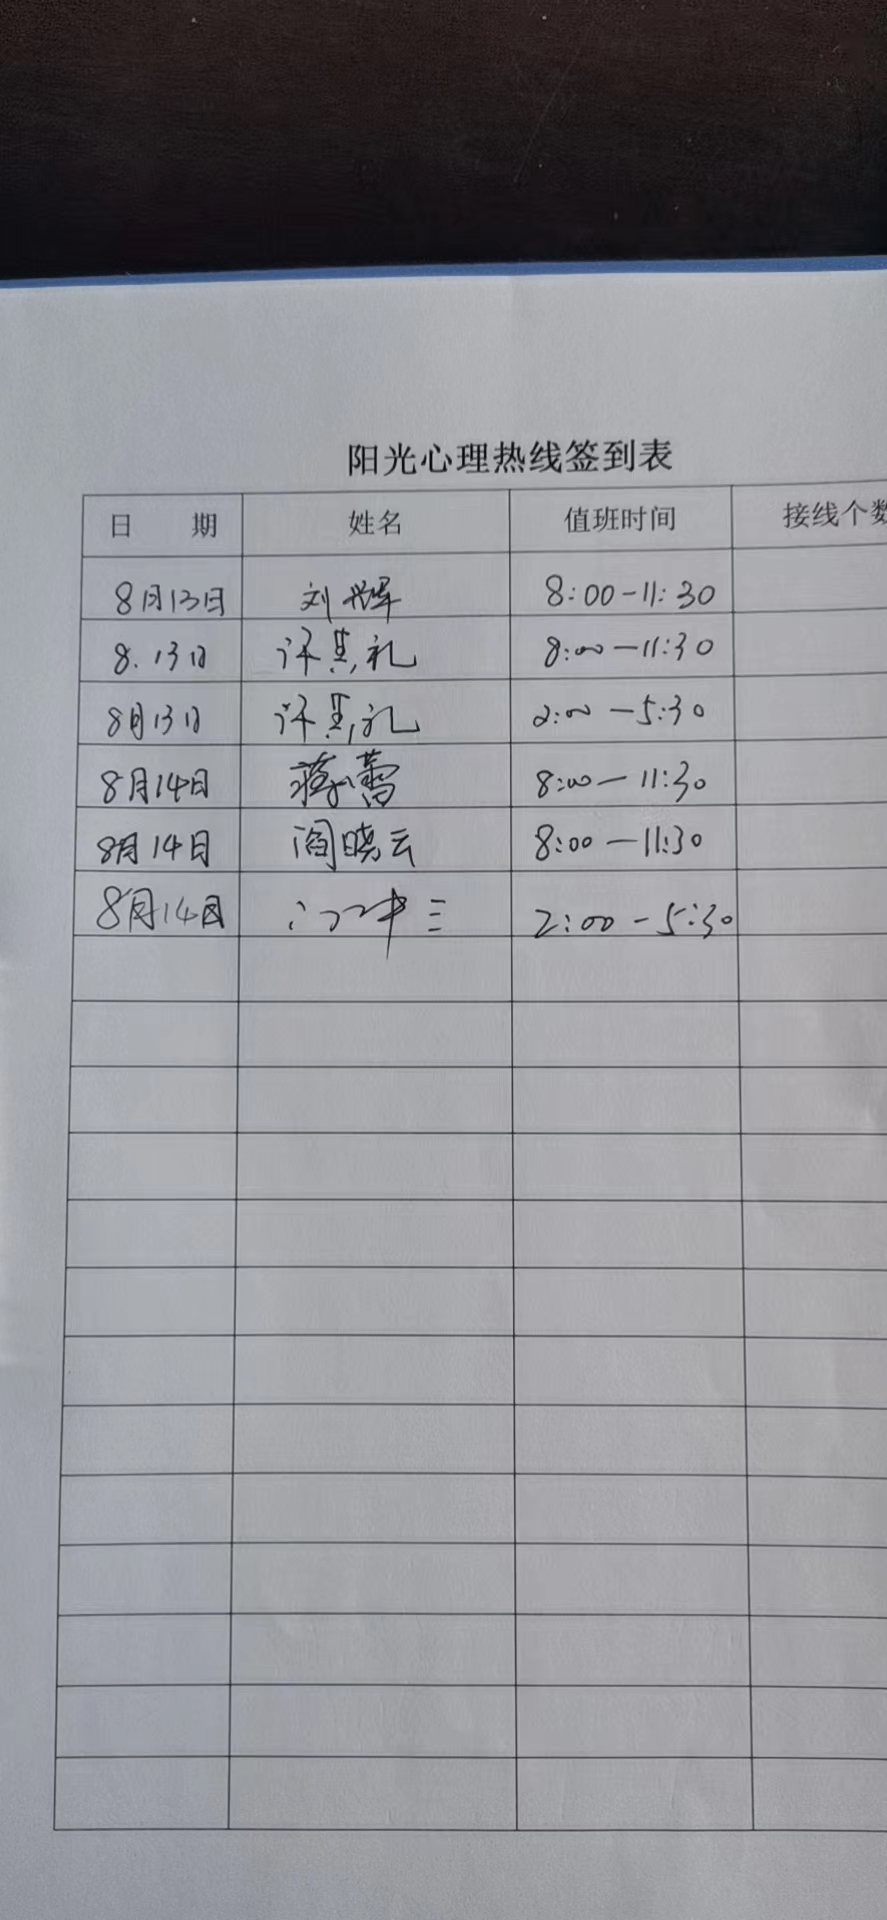 阳光心理热线签到表
日 期 姓名 值班时间 接线个数
8月13日 刘辉 8:00-11:30
8.13日 许 礼 8:00-11:30
8月13日 许 礼 2:00-5:30
8月14日 蒋蕾 8:00-11:30
8月14日 阎晓云 8:00-11:30
8月14日 2:00-5:30